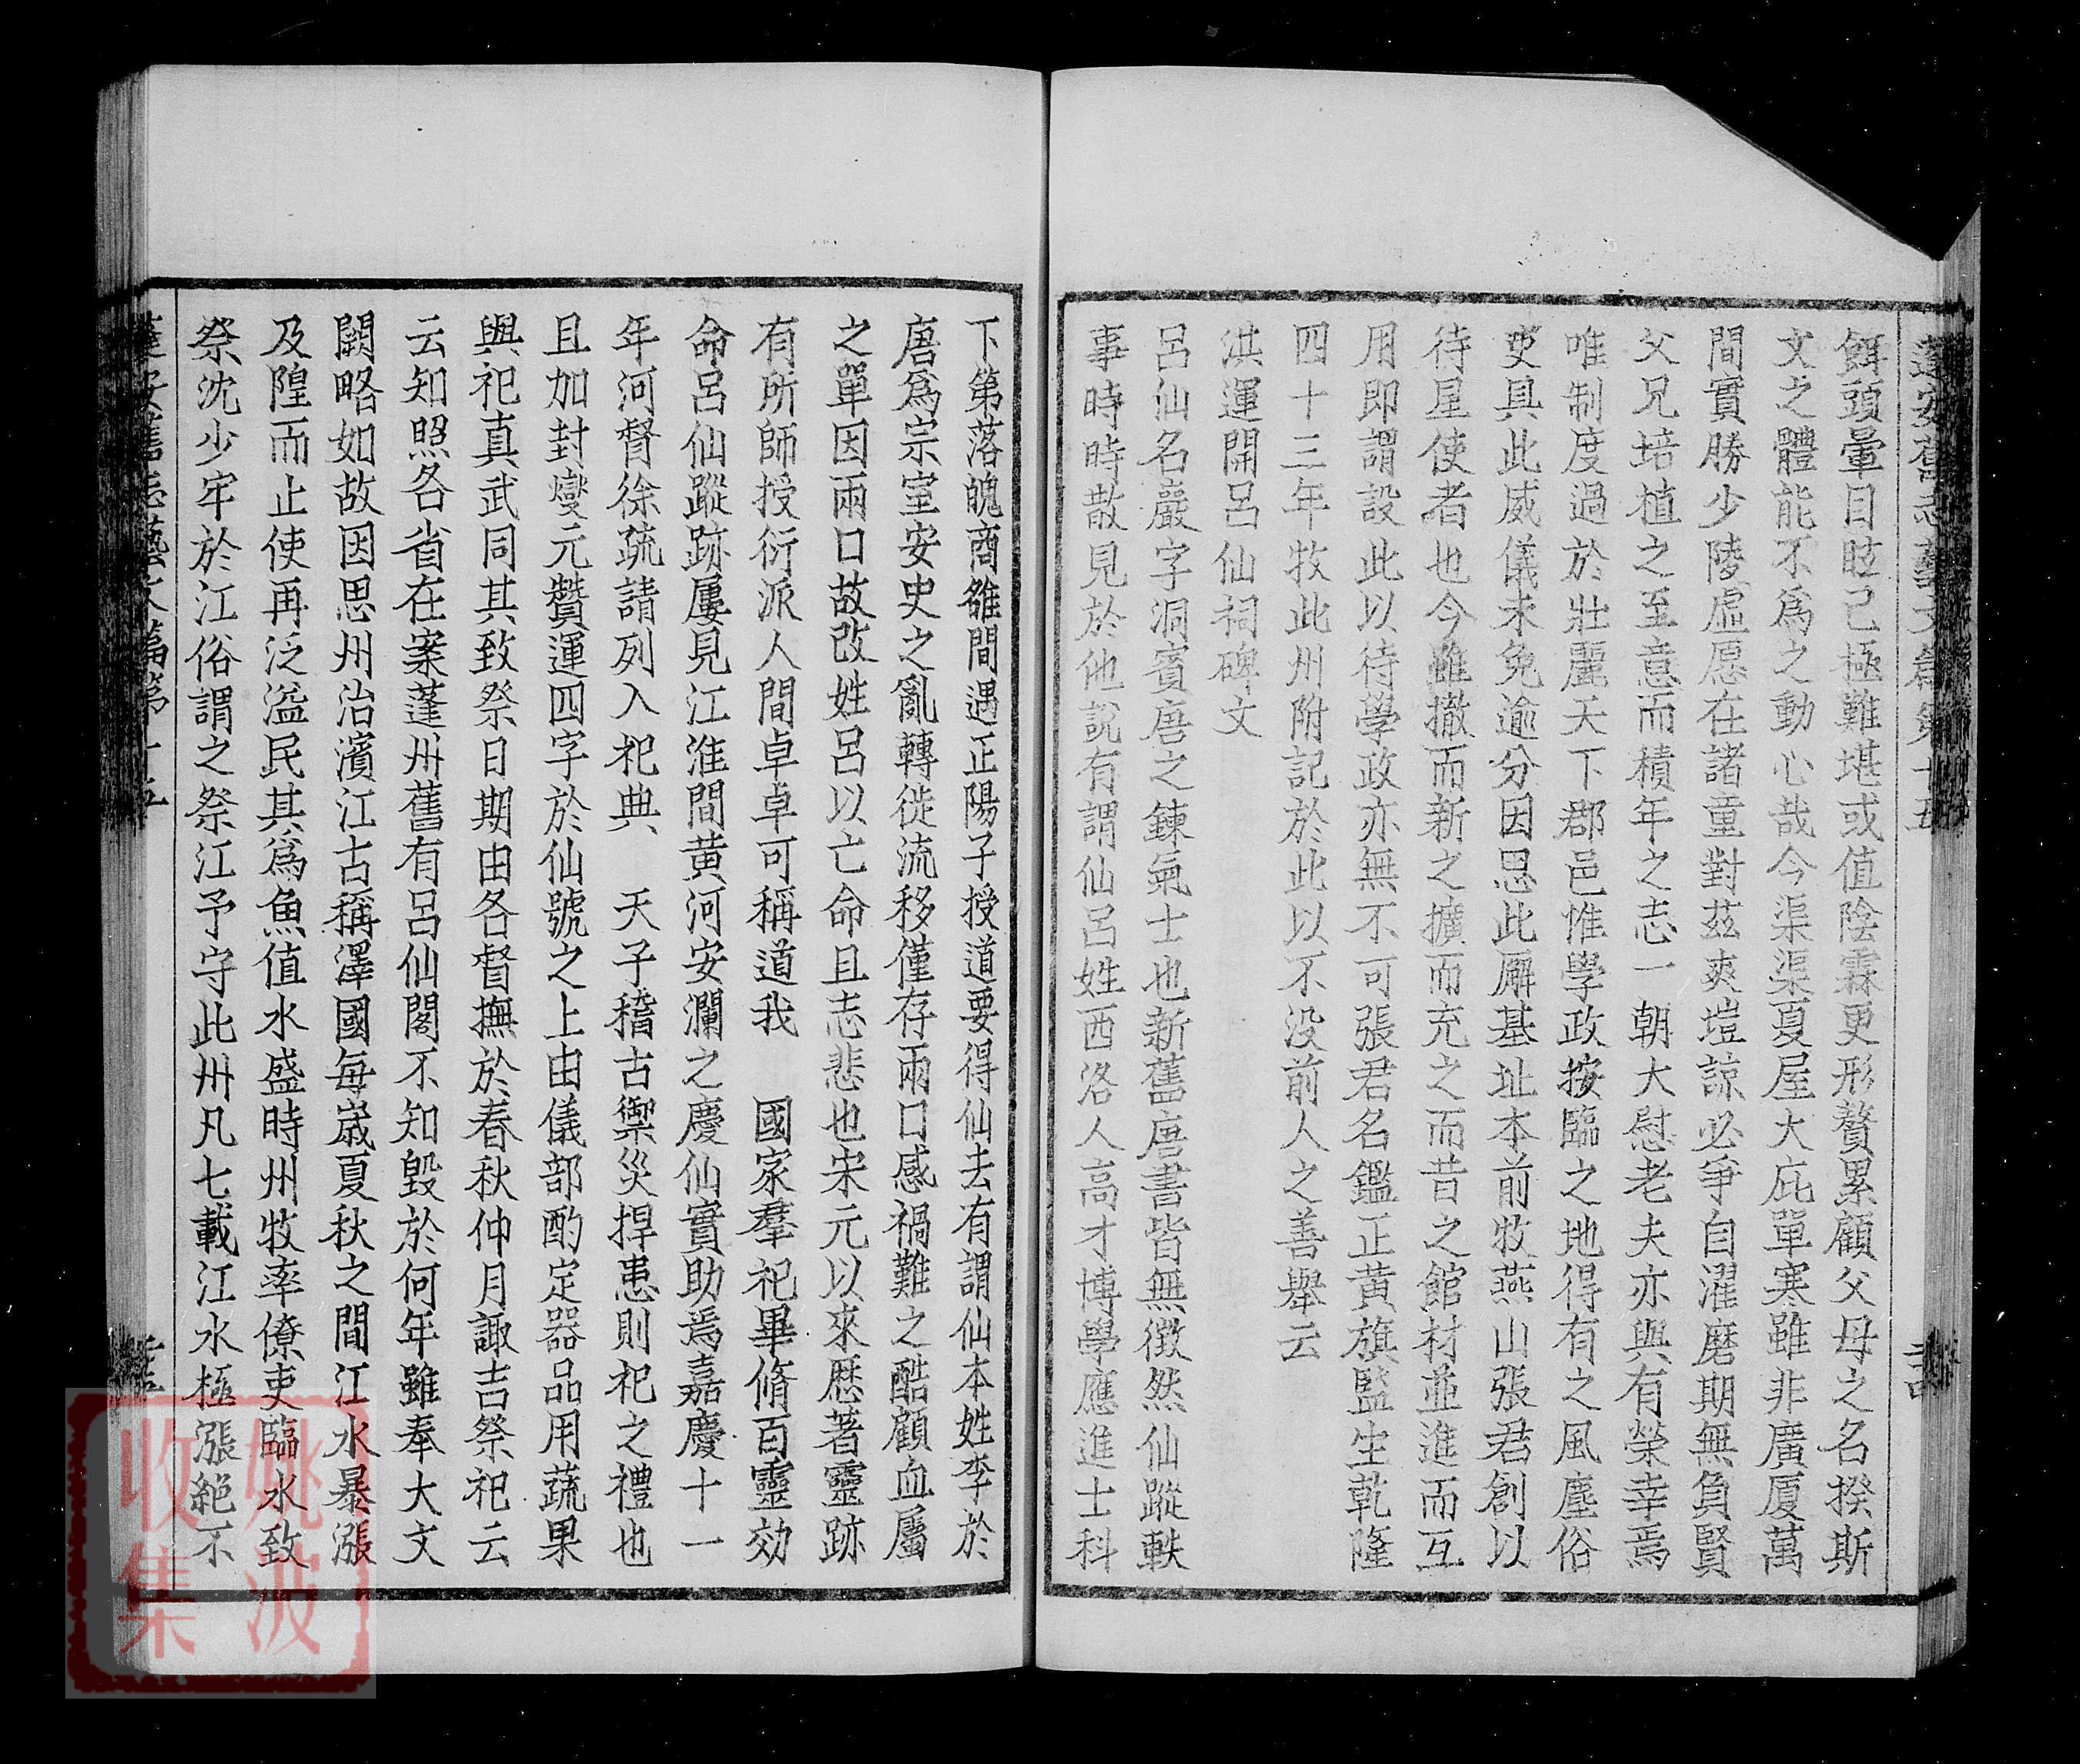 蓬安舊志藝文篇第十五
餌頭暈目眩己極難堪或值陰霖更形贅累顧父母之名揆斯
文之體能不爲之動心哉今渠渠夏屋大庇單寒雖非廣厦萬
間實勝少陵虛愿在諸童對茲爽塏諒必爭自濯磨期無負賢
父兄培植之至意而積年之志一朝大慰老夫亦與有榮幸焉
唯制度過於壯麗天下郡邑惟學政按臨之地得有之風塵俗
吏具此威儀未免逾分因思此廨基址本前牧燕山張君創以
待星使者也今雖撤而新之擴而充之而昔之館材並進而互
用即謂設此以待學政亦無不可張君名鑑正黃旗監生乾隆
四十三年牧此州附記於此以不没前人之善舉云
淇運開呂仙祠碑文
呂仙名巖字洞賓唐之鍊氣士也新舊唐書皆無徵然仙蹤軼
事時時散見於他說有謂仙呂姓西洛人高才博學應進士科
下第落魄商雒間遇正陽子授道要得仙去有謂仙本姓李於
唐爲宗室安史之亂轉徙流移僅存兩口感禍難之酷顧血屬
之單因兩口故改姓呂以亡命且志悲也宋元以來歷著靈跡
有所師授衍派人間卓卓可稱道我 國家羣祀畢脩百靈効
命呂仙蹤跡屢見江淮間黄河安瀾之慶仙實助焉嘉慶十一
年河督徐疏請列入祀典 天子稽古禦災捍患則祀之禮也
且加封燮元贊運四字於仙號之上由儀部酌定器品用蔬果
與祀真武同其致祭日期由各督撫於春秋仲月諏吉祭祀云
云知照各省在案蓬州舊有呂仙閣不知毀於何年雖奉大文
闕略如故因思州治濱江古稱澤國每歲夏秋之間江水暴漲
及隍而止使再泛溢民其爲魚值水盛時州牧率僚吏臨水致
祭沈少牢於江俗謂之祭江予守此州凡七載江水極漲絕不
蓬安舊志藝文篇第十五
姚波
收集